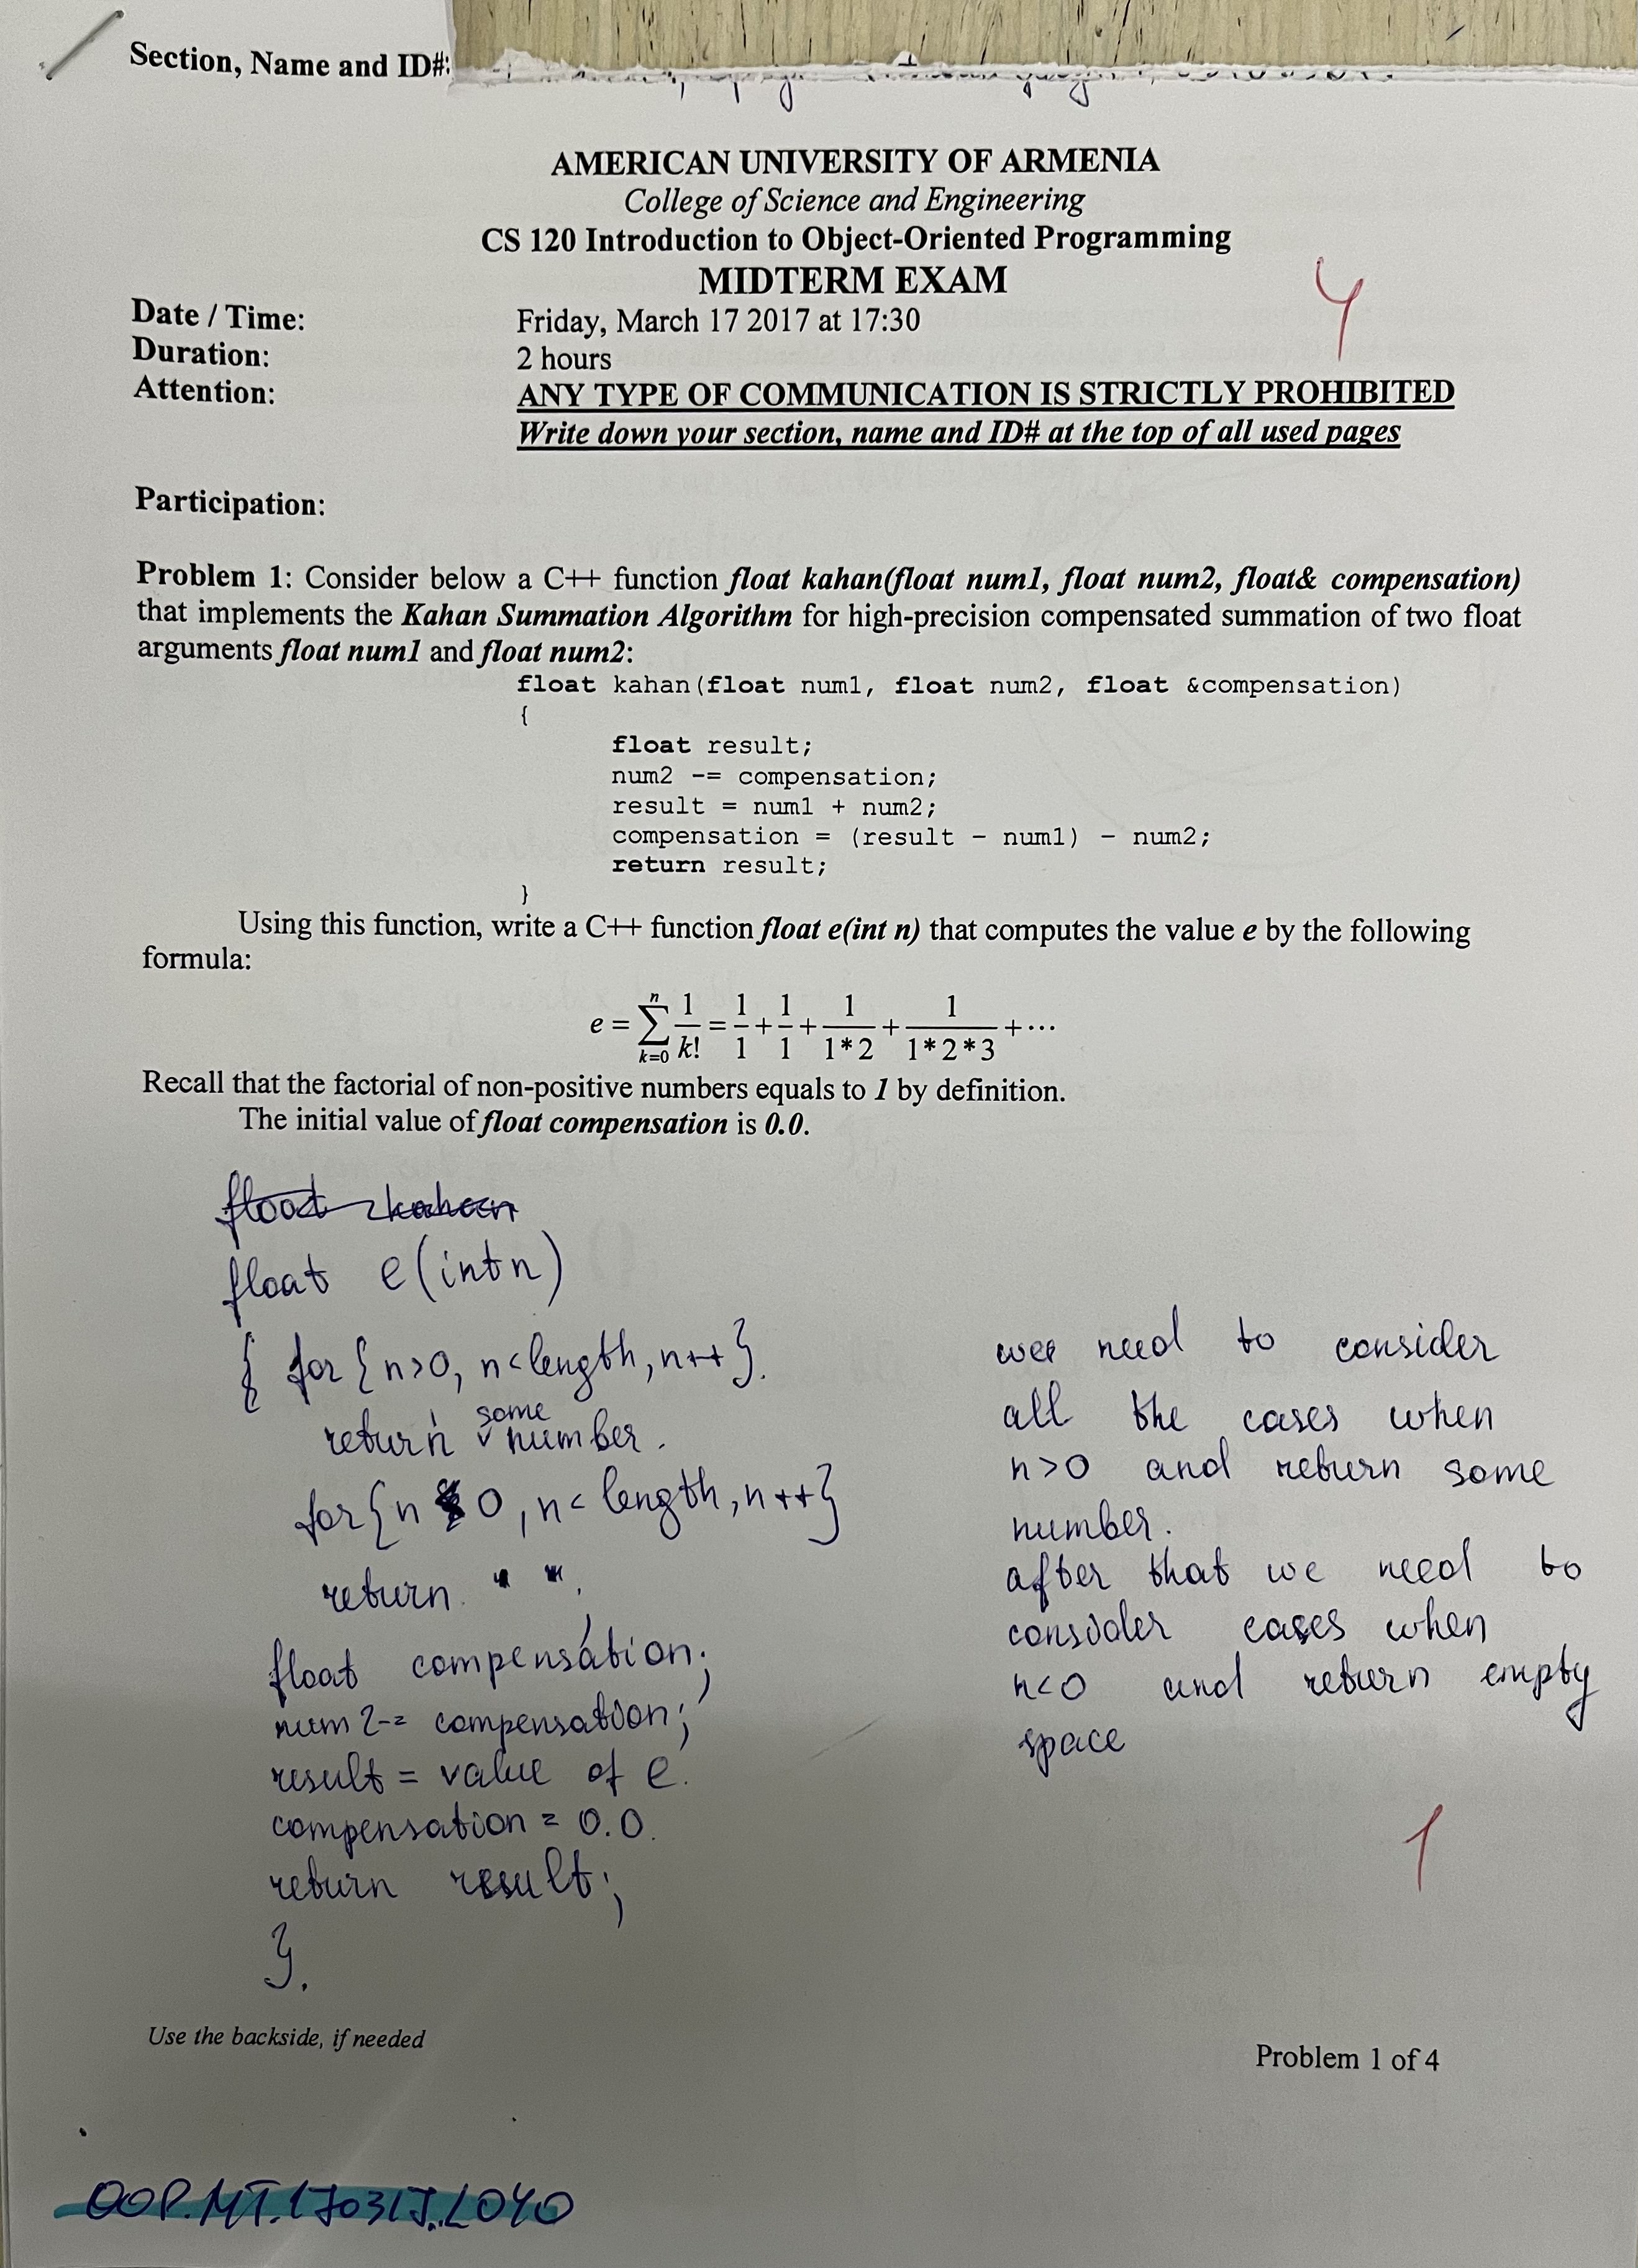 Section, Name and ID#:
AMERICAN UNIVERSITY OF ARMENIA
College of Science and Engineering
CS 120 Introduction to Object-Oriented Programming
MIDTERM EXAM
4
Date / Time: Friday, March 17 2017 at 17:30
Duration: 2 hours
Attention: ANY TYPE OF COMMUNICATION IS STRICTLY PROHIBITED
Write down your section, name and ID# at the top of all used pages
Participation:
Problem 1: Consider below a C++ function float kahan(float num1, float num2, float& compensation)
that implements the Kahan Summation Algorithm for high-precision compensated summation of two float
arguments float num1 and float num2:
float kahan(float num1, float num2, float &compensation)
{
float result;
num2 -= compensation;
result = num1 + num2;
compensation = (result - num1) - num2;
return result;
}
Using this function, write a C++ function float e(int n) that computes the value e by the following
formula:
e = ∑_{k=0}^{n} 1/k! = 1/1 + 1/1 + 1/(1*2) + 1/(1*2*3) + ⋯
Recall that the factorial of non-positive numbers equals to 1 by definition.
The initial value of float compensation is 0.0.
float e(int n)
{ for{n>0, n<length, n++}.
return some number.
for{n 0, n< length, n++}
return " ";
float compensation;
num2-= compensation;
result = value of e.
compensation = 0.0.
return result;
}.
wee need to consider
all the cases when
n>0 and return some
number.
after that we need to
consider cases when
n<0 and return empty
space
1
Use the backside, if needed
Problem 1 of 4
OOP.MT.170317.L040